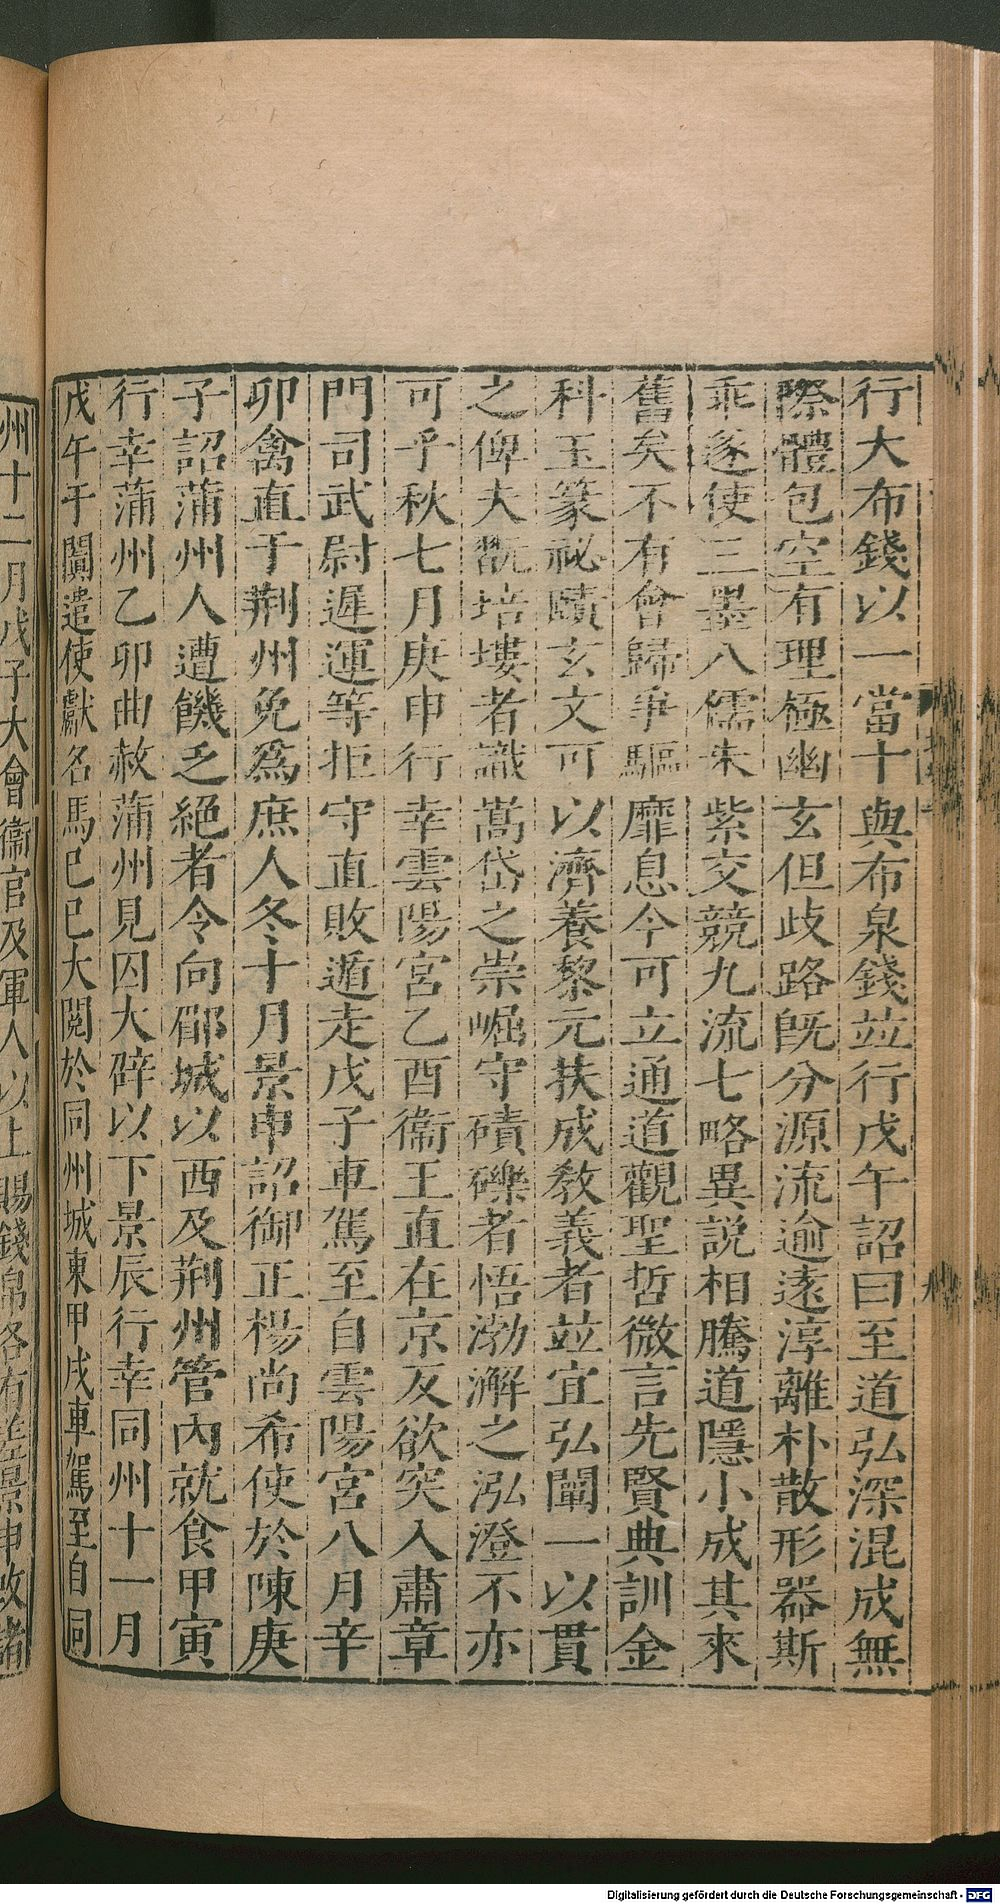 行大布錢以一當十與布泉錢竝行戊午詔曰至道弘深混成無
際體包空有理極幽玄但歧路旣分源流逾遠淳離朴散形器斯
乖遂使三墨八儒朱紫交競九流七略異説相騰道隱小成其來
舊矣不有會歸爭驅靡息今可立通道觀聖哲微言先賢典訓金
科玉篆祕賾玄文可以濟養黎元扶成敎義者竝宜弘闡一以貫
之俾夫翫培塿者識嵩岱之崇崛守磧礫者悟渤澥之泓澄不亦
可乎秋七月庚申行幸雲陽宮乙酉衞王直在京反欲突入肅章
門司武尉遲運等拒守直敗遁走戊子車駕至自雲陽宮八月辛
卯禽直于荆州免爲庶人冬十月景申詔御正楊尚希使於陳庚
子詔蒲州人遭饑乏絕者令向郿城以西及荆州管內就食甲寅
行幸蒲州乙卯曲赦蒲州見囚大辟以下景辰行幸同州十一月
戊午于闐遣使獻名馬己巳大閱於同州城東甲戌車駕至自同
州十二月戊子大會衞官及軍人以上賜錢帛各有差景申改諸
Digitalisierung gefördert durch die Deutsche Forschungsgemeinschaft - DFG